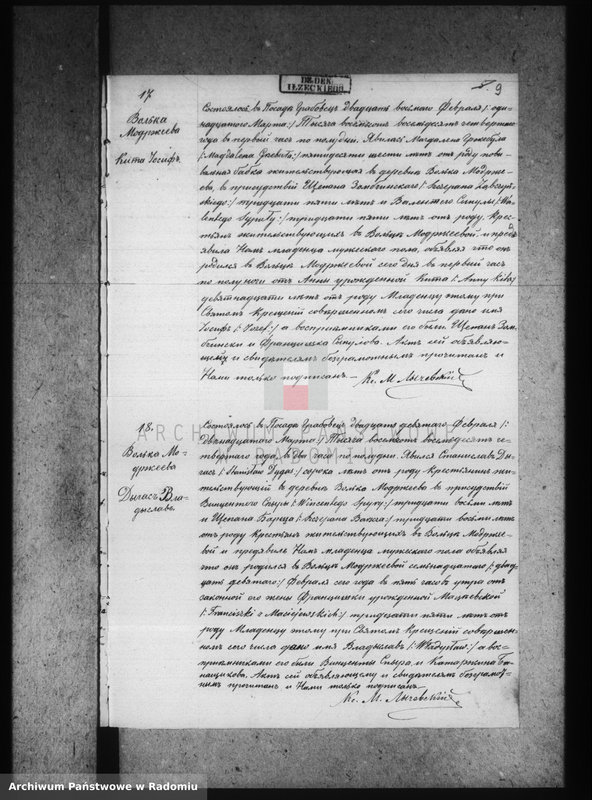 DEDEN
IŁŻECKIEGO
9
17
Волька
Модржеева
Кита Iосифъ
Состоялось въ Посадѣ Грабовецъ двадцать восьмаго Февраля /: оди-
надцатаго Марта :/ Тысяча восемьсотъ восемьдесятъ четвертаго
года въ первый часъ по полудни. Явилась Магдалена
/: Magdalena :/ пятидесяти шести лѣтъ отъ роду пови-
вальная бабка жительствующая въ деревнѣ Волька Модрже-
ева, въ присутствіи Щепана /: Szczepana
:/ тридцати пяти лѣтъ и Валентего /: Wa-
lentego :/ тридцати пяти лѣтъ отъ роду, Крес-
тьянъ жительствующихъ въ Вольцѣ Модржеевой и пред
явила Намъ младенца мужескаго пола, объявляя что онъ
родился въ Вольцѣ Модржеевой сего дня въ первый часъ
по полуночи отъ Анны урожденной Кита /: Anny Kita :/
девятнадцати лѣтъ отъ роду Младенцу этому при
Святомъ Крещеніи совершенномъ сего числа дано имя
Іосифъ /: Józef :/ а воспріемниками его были Щепанъ
и Францишка Актъ сей объявляю-
щей и свидѣтелямъ безграмотнымъ прочитанъ и
Нами только подписанъ.— Кс. М. Лычевскій
ARCHIWUM PAŃSTWOWE
W RADOMIU
18.
Волька Мо-
држеева
Дыгасъ Вла-
дыславъ.
Состоялось въ Посадѣ Грабовецъ двадцать девятаго Февраля /:
Двѣнадцатаго Марта :/ Тысяча восемьсотъ восемьдесятъ че-
твертаго года, въ два часа по полудни. Явился Станиславъ Ды-
гасъ /: Stanisław Dygas :/ сорока лѣтъ отъ роду Крестьянинъ жи-
тельствующій въ деревнѣ Волька Модржеева въ присутствіи
Винцентего /: Wincentego :/ тридцати восьми лѣтъ
и Щепана /: Szczepana :/ тридцати восьми лѣтъ
отъ роду Крестьянъ жительствующихъ въ Вольцѣ Модрже-
евой и предъявилъ Намъ младенца мужескаго пола объявляя
что онъ родился въ Вольцѣ Модржеевой семнадцатаго /: двад-
цать девятаго :/ Февраля сего года въ пять часовъ утра отъ
законной его жены Францишки урожденной Мацѣевской
/: Franciszki z Maciejewskich :/ тридцати пяти лѣтъ отъ
роду Младенцу этому при Святомъ Крещеніи совершен-
номъ сего числа дано имя Владыславъ /: Władysław :/ а вос-
пріемниками его были Винценты и Катаржина
Актъ сей объявляющему и свидѣтелямъ безграмот-
нымъ прочитанъ и Нами только подписанъ.—
Кс. М. Лычевскій
Archiwum Państwowe w Radomiu